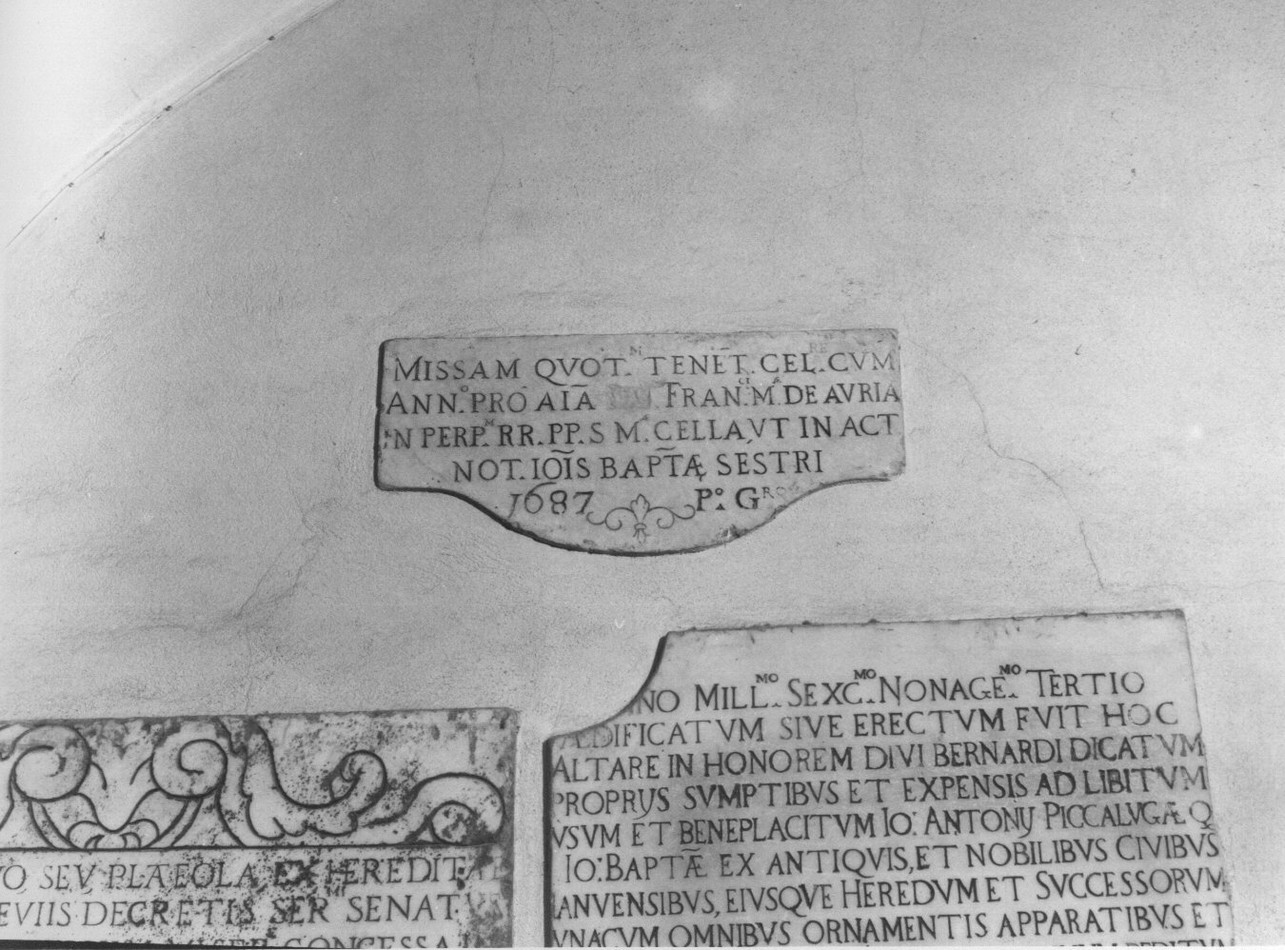 MISSAM QVOT.M TENĒT. CELRE. CVM
ANNO. PRŌ AIĀ FRANCI. MA. DE AVRIA
IN PERPM. RR. PP. S MA. CELLA, VT IN ACT
NOT. IOĪS BAPT̄Æ SESTRI
1687 Po. GRSO
NO MILLMO. SEXCMO. NONAGEMO. TERTIO
ÆDIFICATVM SIVE ERECTVM FVIT HOC
ALTARE IN HONOREM DIVI BERNARDI DICATVM
PROPRIJS SVMPTIBVS ET EXPENSIS AD LIBITVM
VSVM ET BENEPLACITVM IO: ANTONIJ PICCALVGÆ Q
IO: BAPTÆ EX ANTIQVIS, ET NOBILIBVS CIVIBVS
IANVENSIBVS, EIVSQVE HEREDVM ET SVCCESSORVM
VNACVM OMNIBVS ORNAMENTIS APPARATIBVS ET
SEV PLATEOLA EX HEREDIT
EVIIS DECRETIS SER SENAT
CONCESSA